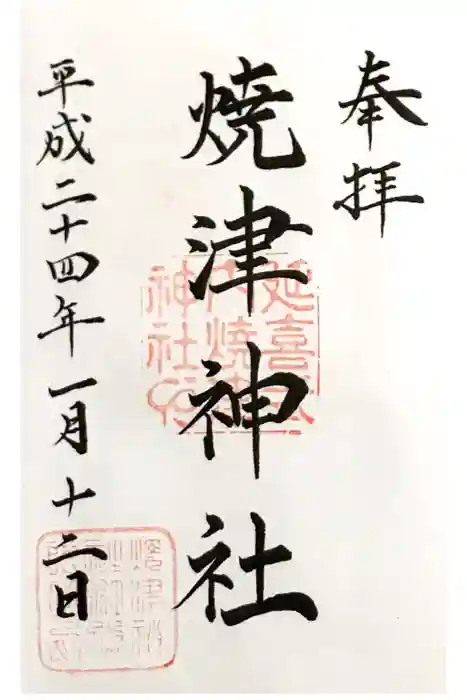 奉拝
焼津神社
平成二十四年一月十二日
延喜式
内焼津
神社